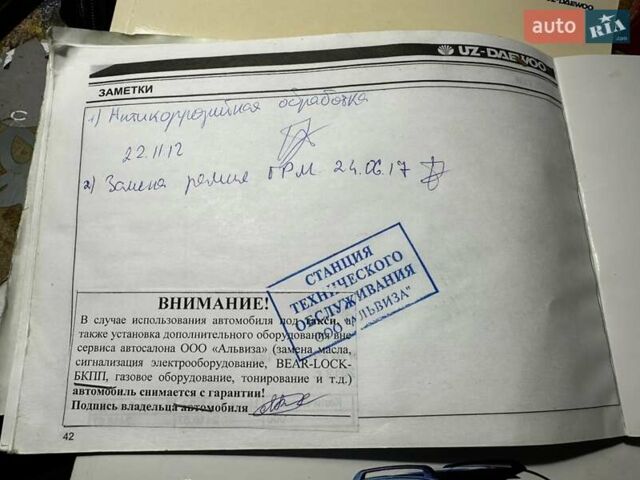 UZ-DAEWOO
auto RIA.com
UZ-DAEWOO
ЗАМЕТКИ
1) Антикоррозийная обработка
22.11.12
2) Замена ремня ГРМ 24.06.17
СТАНЦИЯ
ТЕХНИЧЕСКОГО
ОБСЛУЖИВАНИЯ
ООО "АЛЬВИЗА"
ВНИМАНИЕ!
В случае использования автомобиля под такси, а
также установка дополнительного оборудования вне
сервиса автосалона ООО «Альвиза» (замена масла,
сигнализация электрооборудование, BEAR-LOCK-
БКПП, газовое оборудование, тонирование и т.д.)
автомобиль снимается с гарантии!
Подпись владельца автомобиля
42